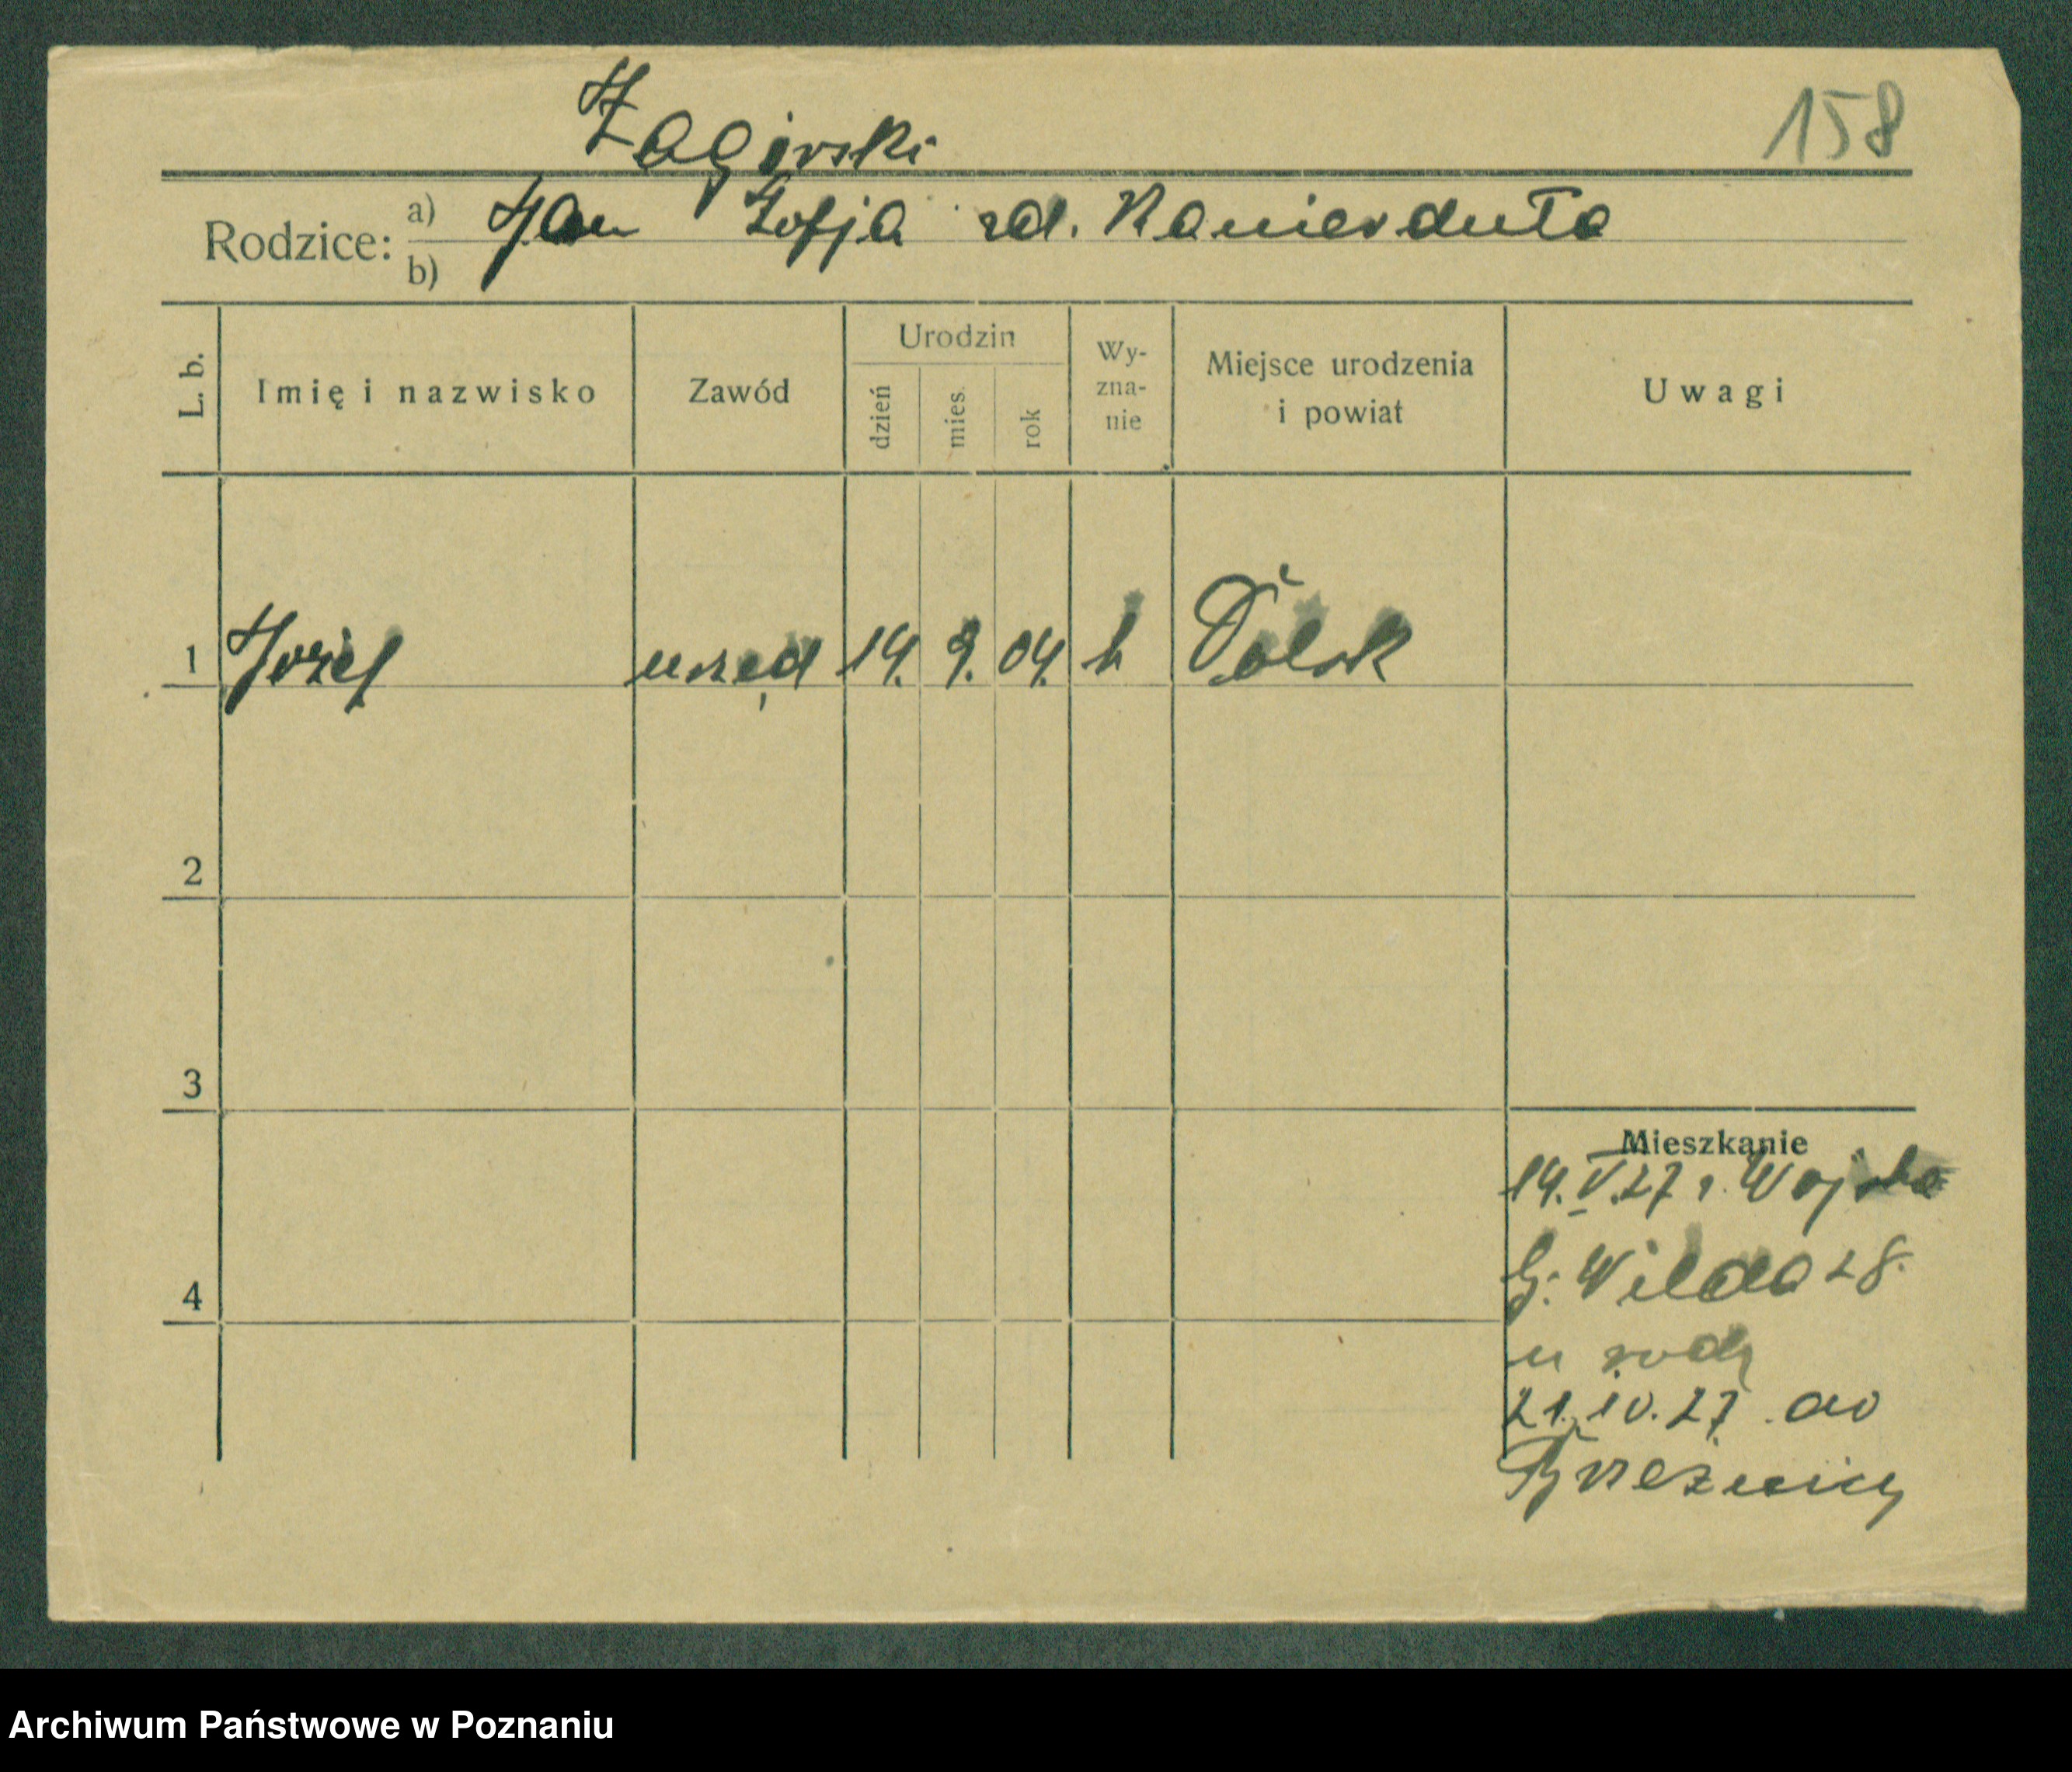 158
Rodzice: a) Jan Zofja
b)
L. b. Imię i nazwisko Zawód Urodzin dzień mies. rok Wy-zna-nie Miejsce urodzenia i powiat Uwagi
1 Józef urzęd 14. 9. 04. k
2
3
4
Mieszkanie
14. V. 27 z Wojska
G. Wilda 28.
u rodz
21. 10. 27. do
Brzeźnicy
Archiwum Państwowe w Poznaniu